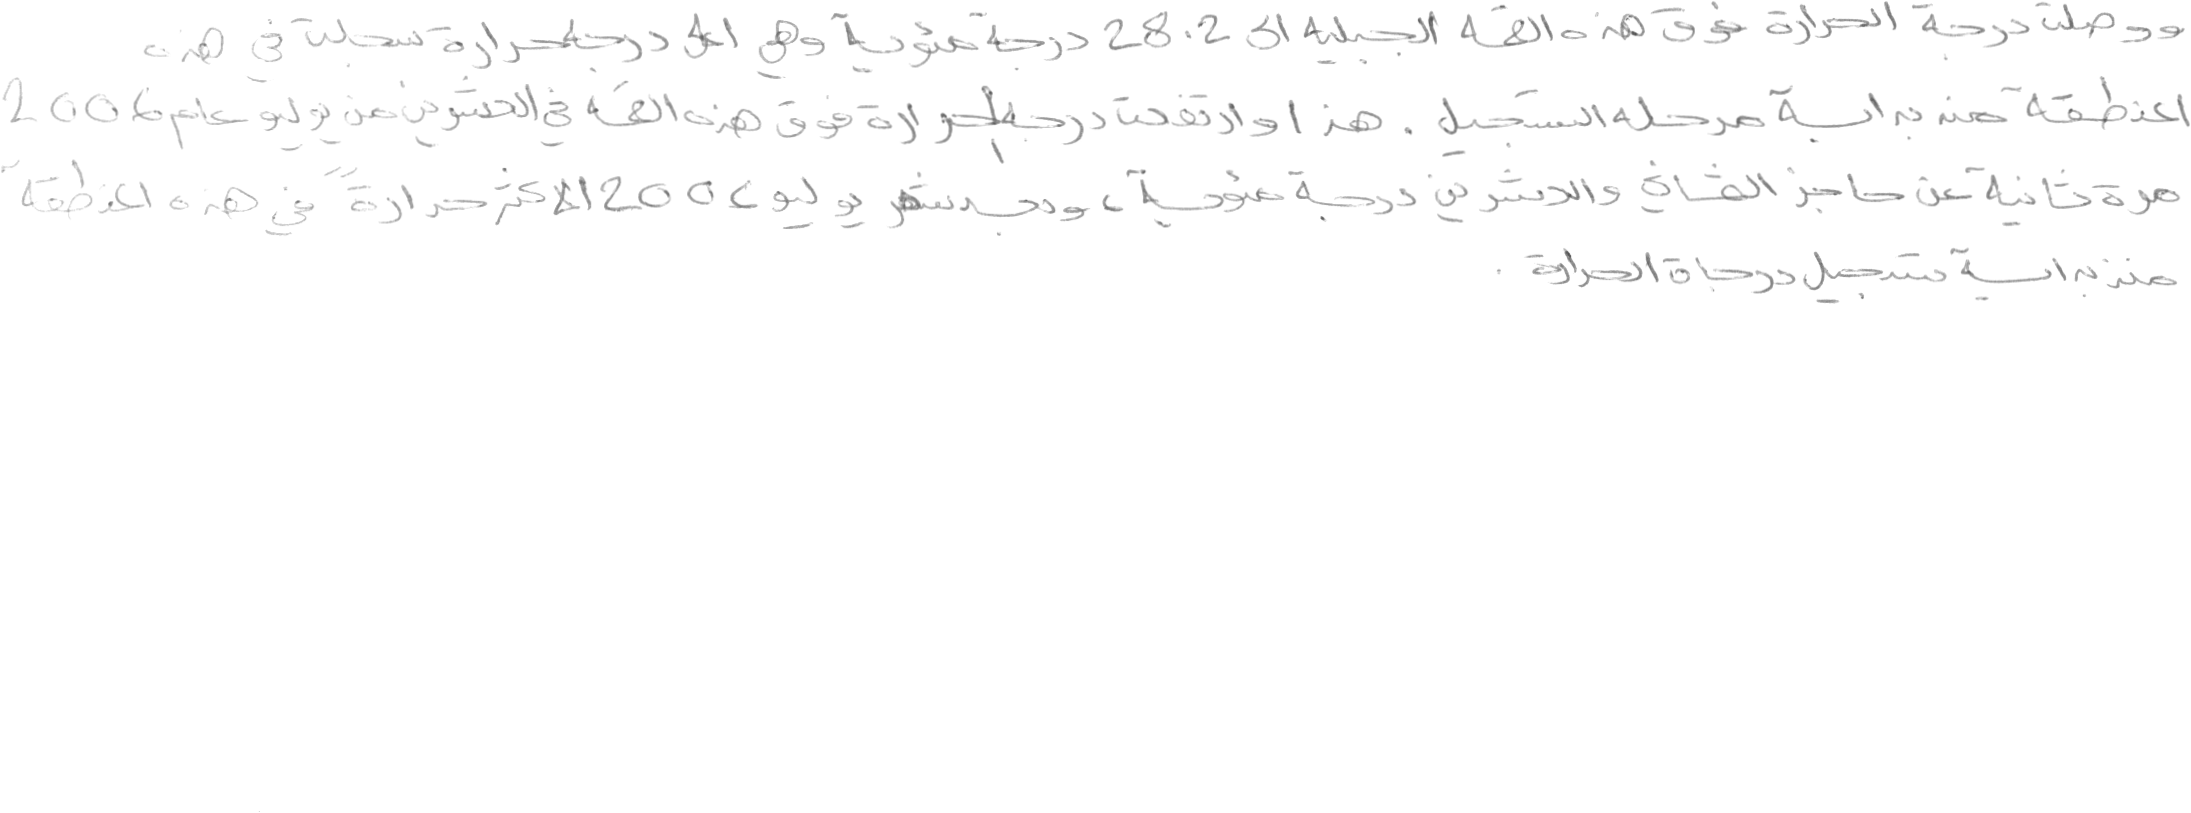 ووصلت درجة الحرارة فوق هذه القمه الجبليه الى 28.2 درجة مئوية وهي اعلى درجة حرارة سجلت في هذه
المنطقة منذ بداية مرحله التسجيل . هذا وارتفعت درجة الحرارة فوق هذه القمه في العشرين من يوليو عام 2006
مرة ثانية عن حاجز الثماني والعشرين درجة مئوية ، ويعد شهر يوليو 2006 الاكثر حرارة" في هذه المنطقة
منذ بداية تسجيل درجاة الحرارة .